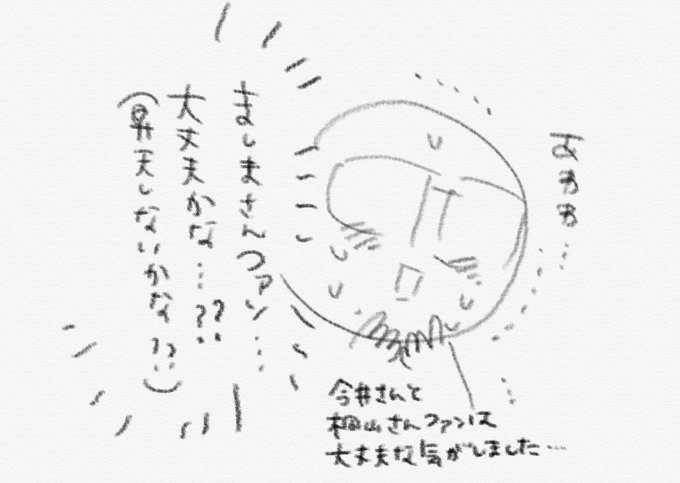 ましまさんファン…
大丈夫かな…??
(昇天しないかな??)
今井さんと
桐山さんファンは
大丈夫な気がしました…